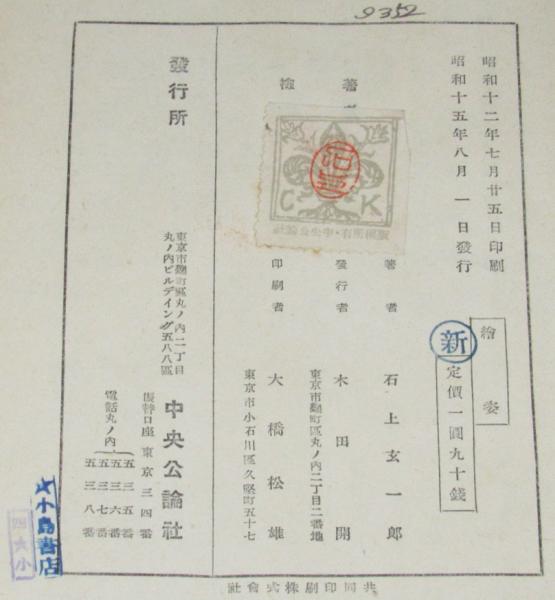 9352
昭和十二年七月廿五日印刷
昭和十五年八月一日發行
繪姿
新
定價一圓九十錢
著
檢
C K
版權所有・中央公論社
著者 石上玄一郎
發行者 木田開
東京市麴町區丸ノ內二丁目二番地
印刷者 大橋松雄
東京市小石川區久堅町五十七
發行所
東京市麴町區丸ノ內二丁目
丸ノ內ビルデイング五八八區
中央公論社
振替口座東京三四番
電話丸ノ內
五三五番
五三六番
五三七番
五三八番
共同印刷株式會社
小島書店
四大小